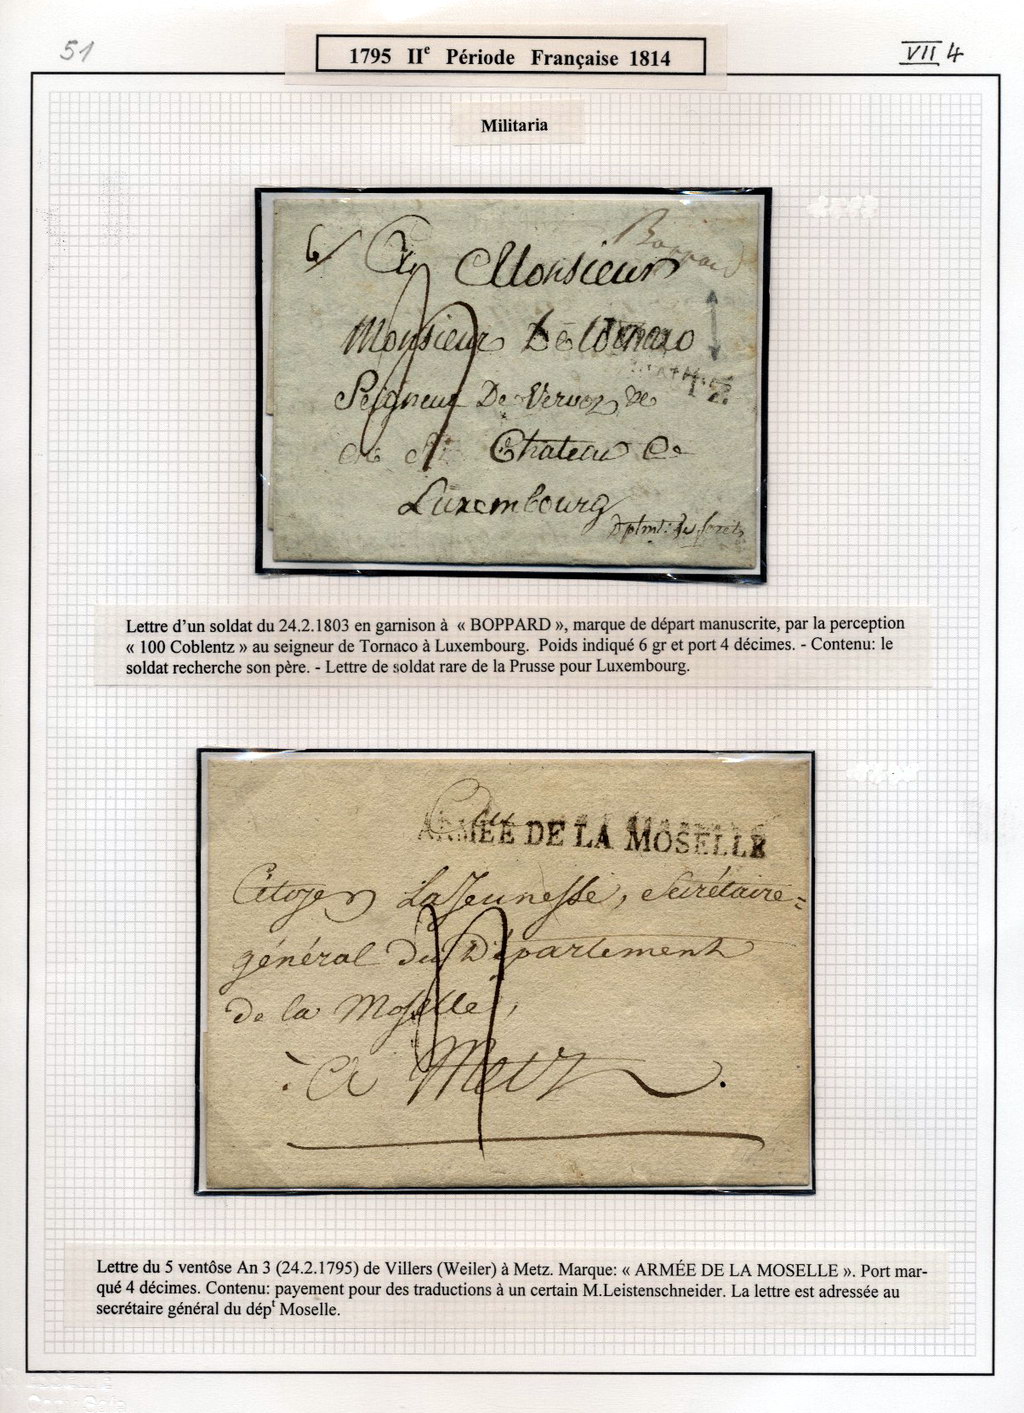 51
1795 IIe Période Française 1814
VII 4
Militaria
Boppard
6 A Monsieur
Monsieur De Tornaco
Seigneur De Vervoz, De
Chateau
Luxembourg
Dptmt: de foretz
Lettre d’un soldat du 24.2.1803 en garnison à « BOPPARD », marque de départ manuscrite, par la perception
« 100 Coblentz » au seigneur de Tornaco à Luxembourg. Poids indiqué 6 gr et port 4 décimes. - Contenu: le
soldat recherche son père. - Lettre de soldat rare de la Prusse pour Luxembourg.
Au
ARMÉE DE LA MOSELLE
Citoyen LaJeunesse, Secrétaire=
général du Département
de la Moselle,
à Metz.
Lettre du 5 ventôse An 3 (24.2.1795) de Villers (Weiler) à Metz. Marque: « ARMÉE DE LA MOSELLE ». Port mar-
qué 4 décimes. Contenu: payement pour des traductions à un certain M.Leistenschneider. La lettre est adressée au
secrétaire général du dépt Moselle.